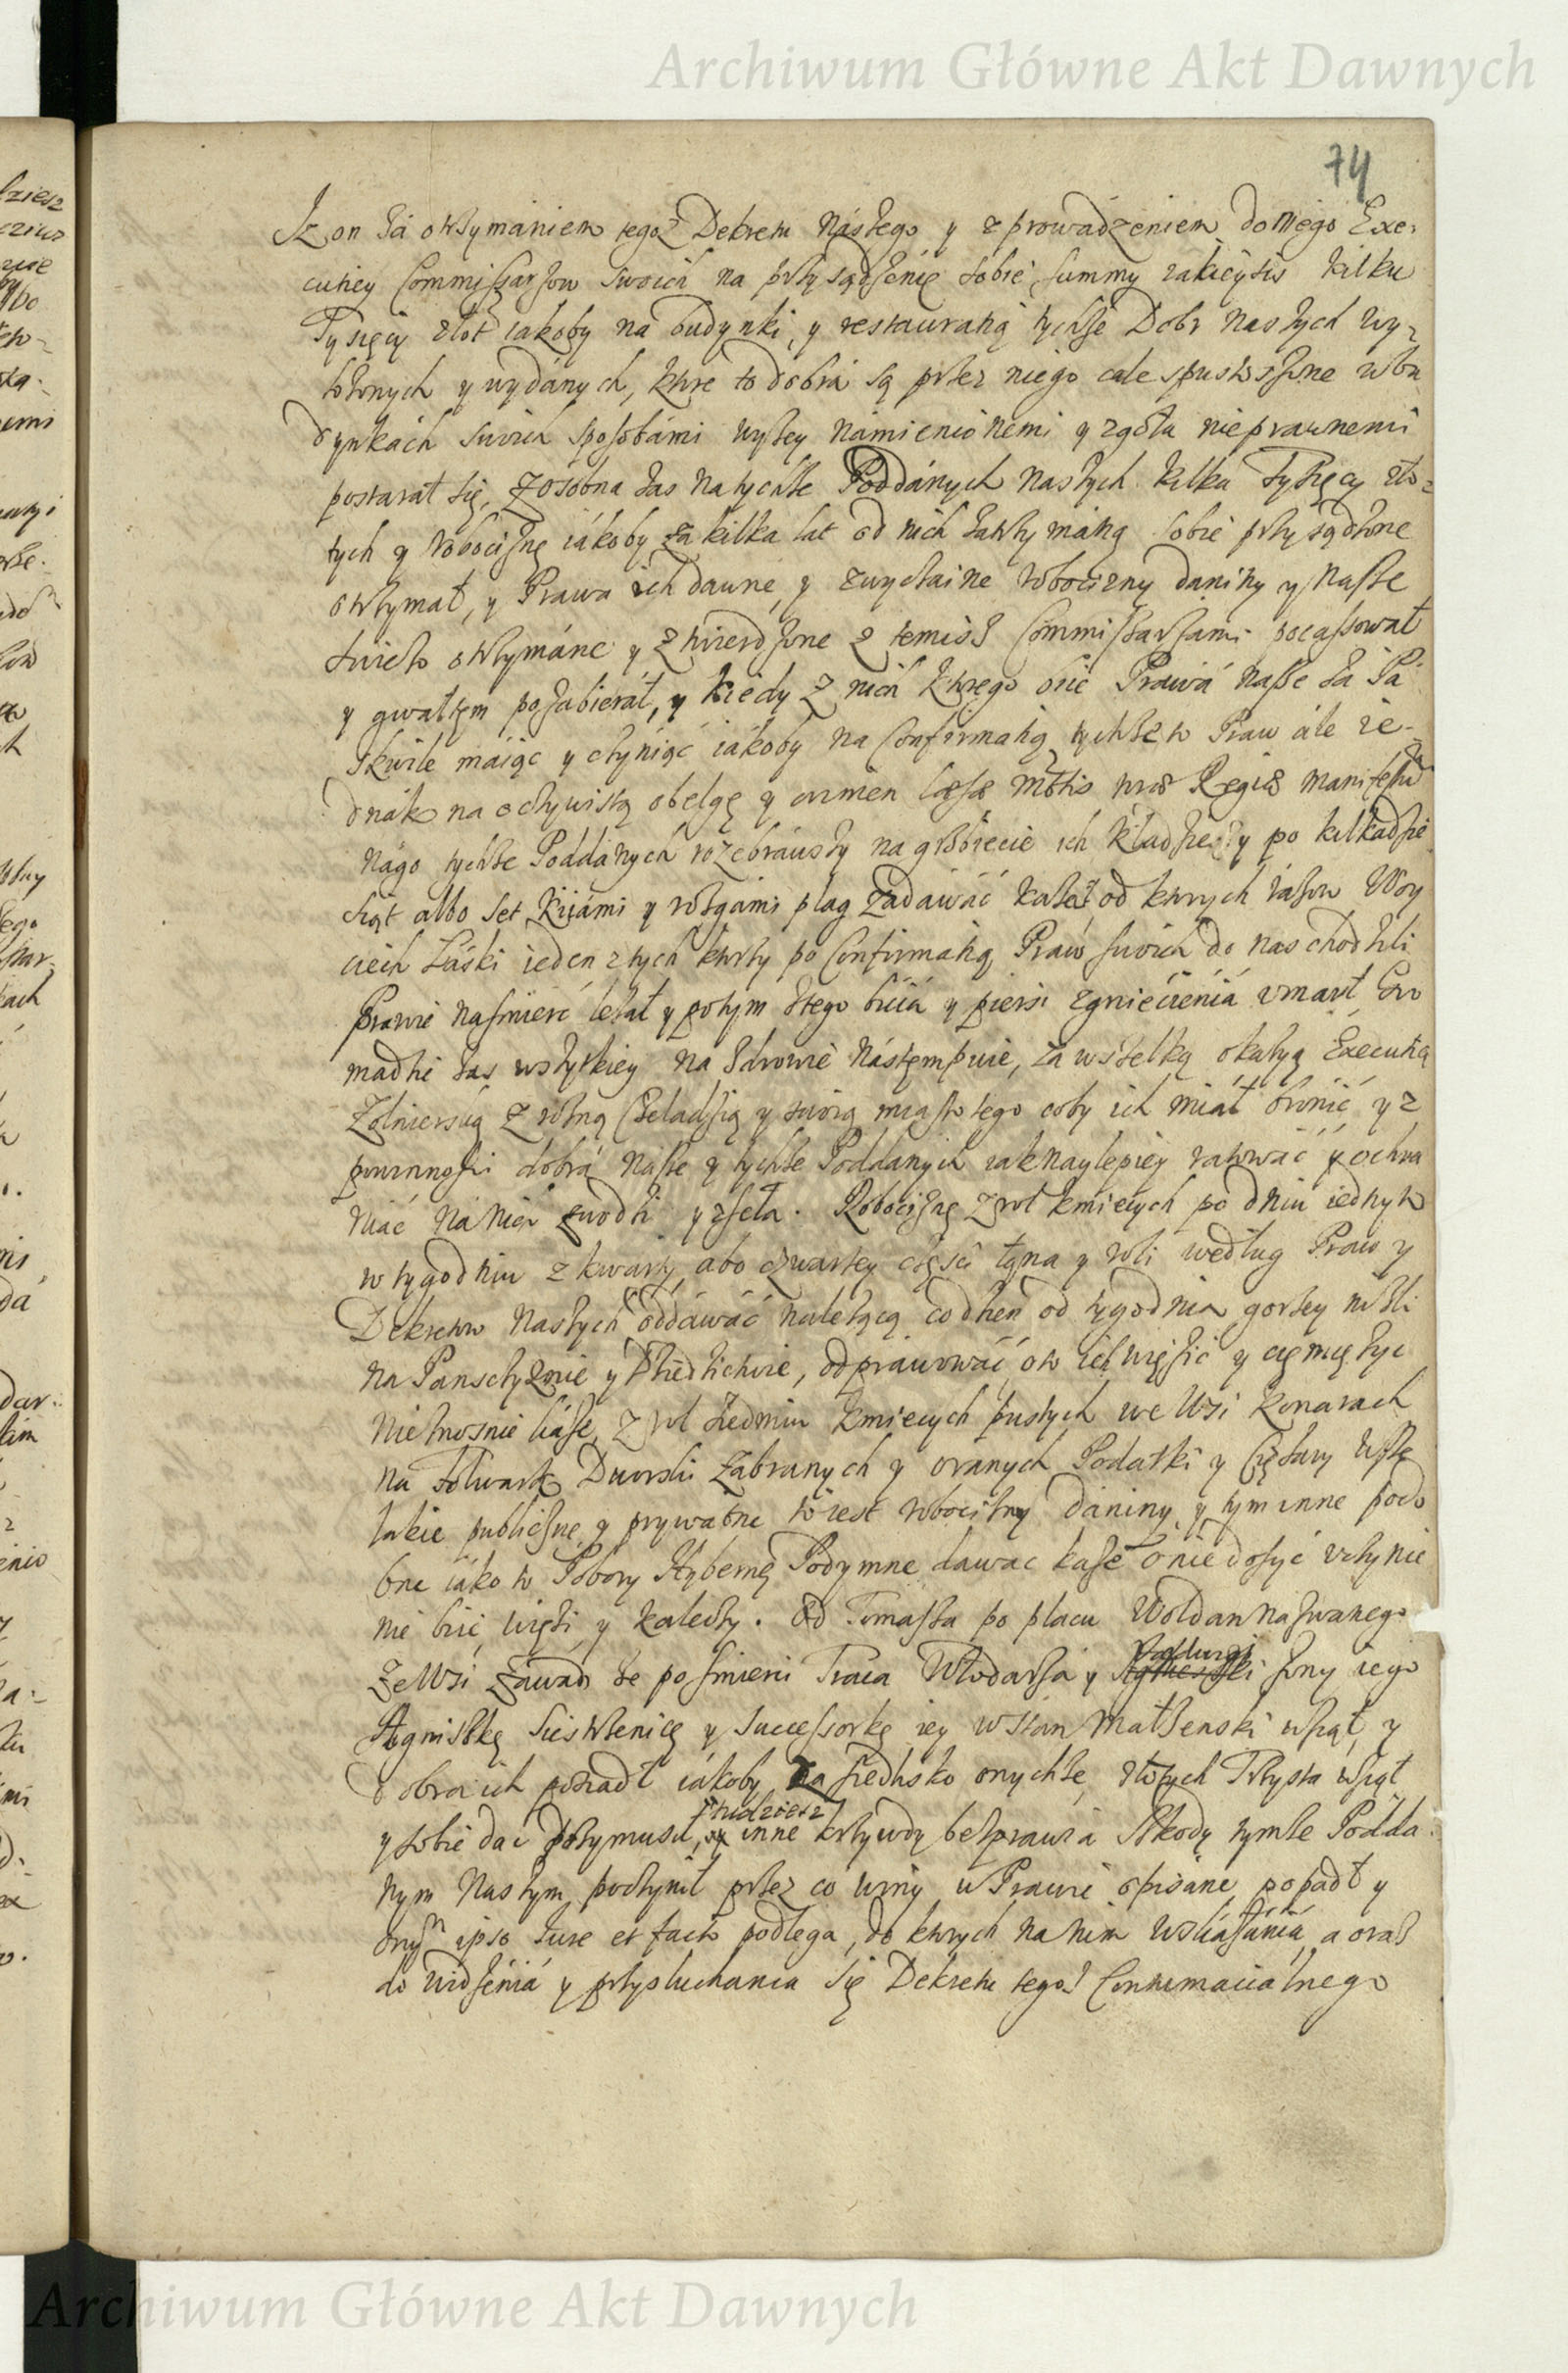 Archiwum Główne Akt Dawnych
74
Iz on za otrzymaniem tegoz Dekretu Nászego y zprowádzeniem do niego Exe-
cutiey Commissarzow swoich na przysądzenie sobie summy iakieysis kilku
Tysięcy złot iakoby na budynki, y restauratią tychże Dobr naszych wy-
łożonych y wydánych, ktore to dobrá są przez niego cale spustoszone w bu
dynkách swoich sposobámi wyżey námienionemi y zgołu nieprawnemi
postarał się, Zosobna zas na tychże Poddánych naszych kilka Tysięcy zło-
tych y robociznę iákoby za kilka lat od nich zatrzymáną sobie przysądzone
otrzymał, y Prawa ich dawne, y zwyczaine robocizny daniny y Nasze
swiezo otrzymáne y ztwierdzone z temisz Commissarzami pocassował
y gwałtem pozabierał, y kiedy z nich ktorego one Prawá nasze zá Pá
szkwile máiąc y czyniąc iákoby na Confirmatią tychże to Praw ále ie-
dnák na oczywistą obelgę y crimen læsæ Mttis nræ Regiæ manifestũ
nágo tychże Poddánych rozebráwszy na grzbiecie ich kładzie y po kilkadzie
siąt albo set kiiámi y rozgámi plag zadáwáć każe od ktorych rázow Woy
ciech Láski ieden z tych ktorzy po Confirmatią Praw swoich do nas chodzili
Prawie na smierć leżał y potym z tego bicia y piersi zgniecienia vmarł Gro
madzie zas wszytkiey na zdrowie nástempuie, za wszelką okazyą Executią
Zołnierską z rożną Czeladzią y swoią miasto tego coby ich miáł bronić y z
powinnosci dobrá nasze y tychże Poddanych iak naylepiey ratować y ochra
niáć na nich zwodzi y zseła. Robociznę z rol kmiecych po dniu iednym
w tygodniu z kwarty abo czwartey częsci łąna y roli według Praw y
Dekretow Naszych oddáwáć należącą co dzien od tygodnia gorzey niżli
na Panszczyznie y Dziedzictwie, odpráwowáć, oto ich więzić y ciemiężyć
nieznosnie każe, z rol siedmiu kmiecych pustych we Wsi Konarach
na folwark Dworski zabranych y oranych Podatki y ciężary wsze
lakie publiczne y prywatne to iest robocizny daniny y tym inne podo
bne iáko to Pobory Hybernę Podymne dawac każe o nie dosyć vczynie
nie bije, więzi y kaleczy. Od Tomasza po placu Woldan nazwanego
ze Wsi Zawad że po smierci Traca Włodarza y Jadwigi żony iego
Agniszkę siestrzenicę y Successorkę iey w stan Małżenski wziął y
dobra ich posiadł iákoby na siedlisko onychże, złotych Trzysta wziął
y sobie dać przymusił, tudziesz inne krzywdy bezprawia szkody tymże Podda
nym Naszym poczynił przez co winy w Prawie opisane popadł y
onym ipso iure et facto podlega, do ktorych na nim wskázánia, a oraz
do widzenia y przysluchania się Dekretu tegoż Contumacialnego
Archiwum Główne Akt Dawnych